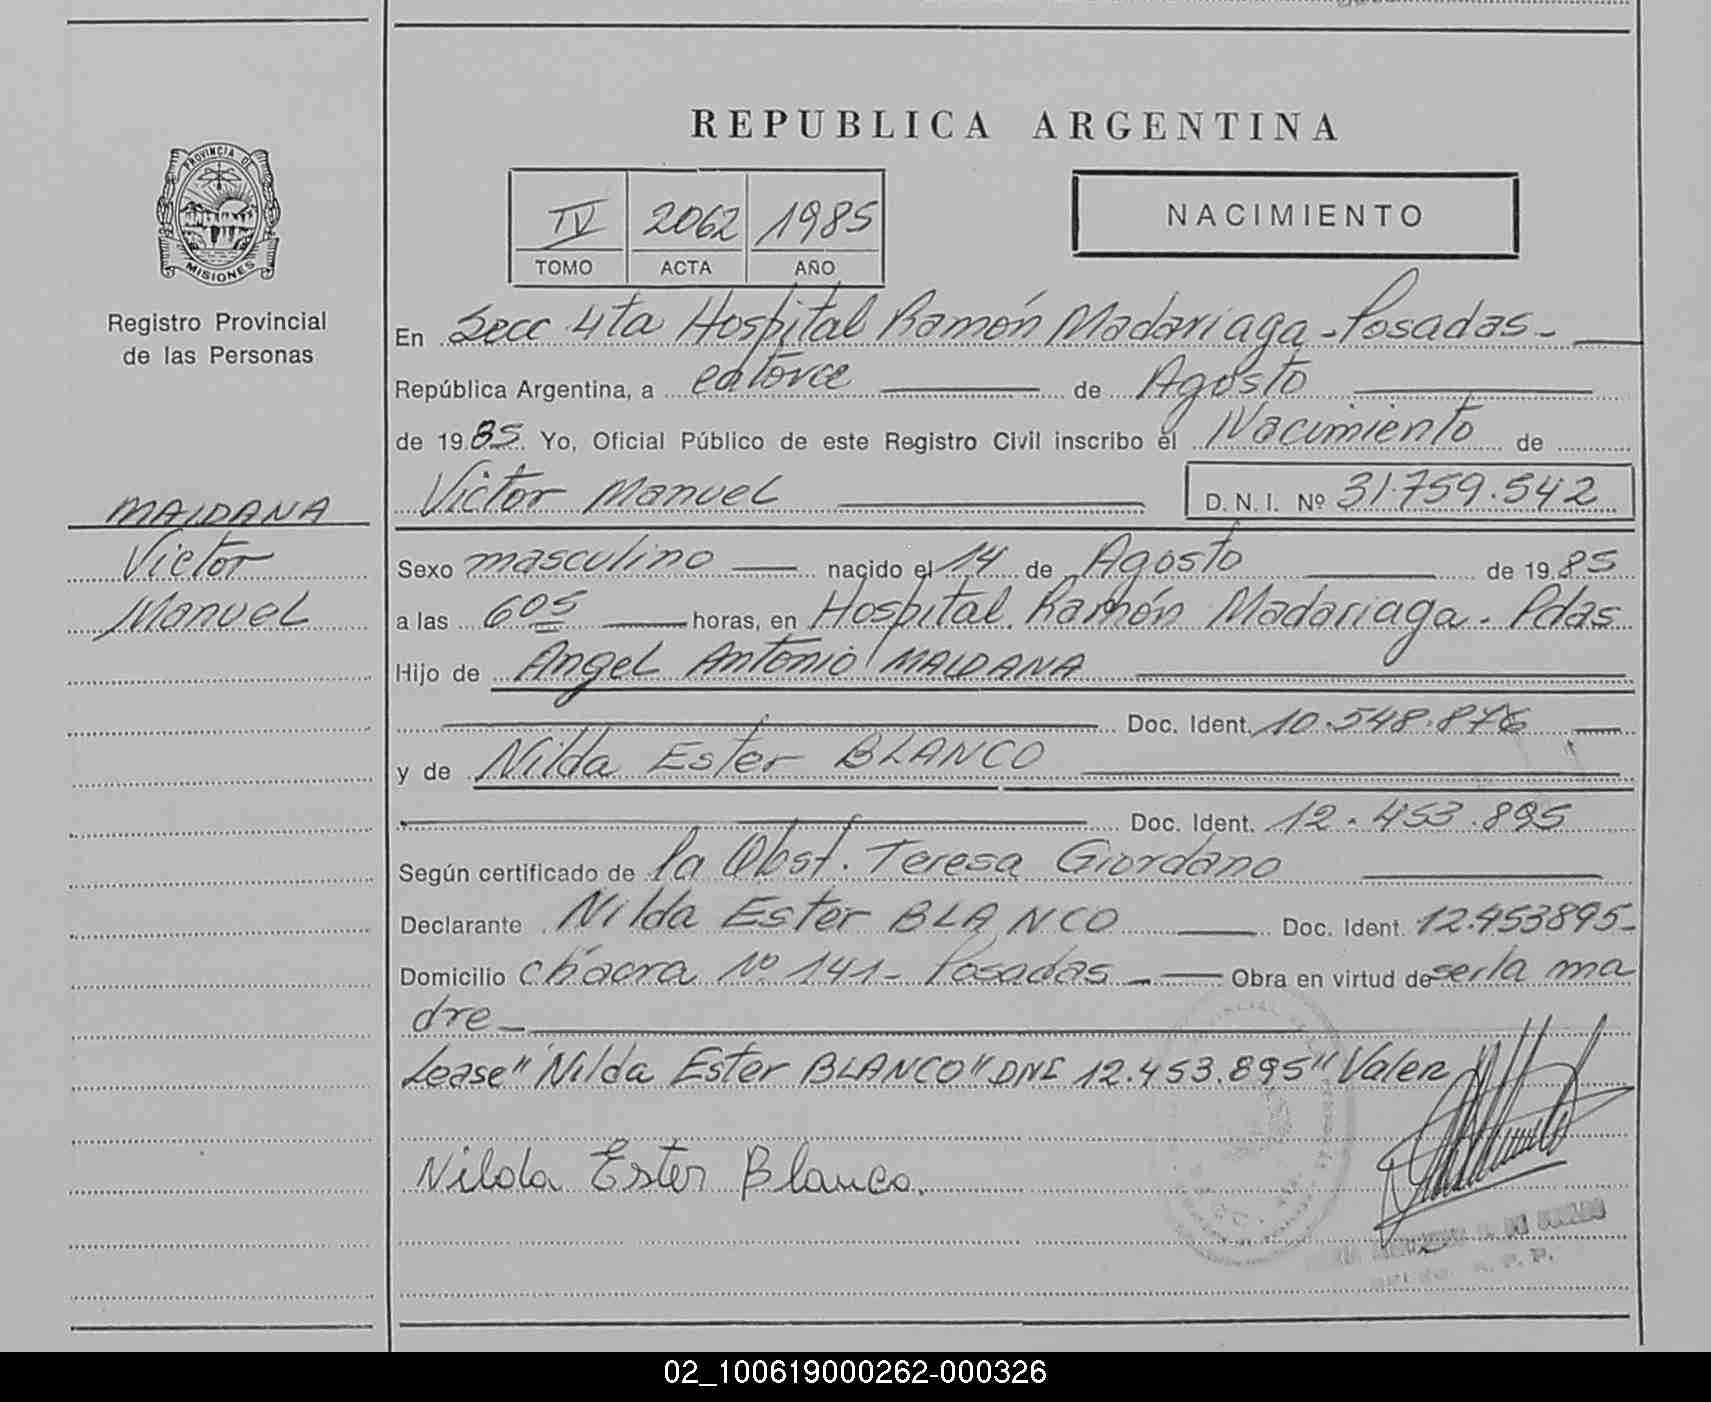 REPUBLICA ARGENTINA
PROVINCIA DE
MISIONES
Registro Provincial
de las Personas
IV 2062 1985
TOMO ACTA AÑO
NACIMIENTO
En Secc 4ta Hospital Ramón Madariaga - Posadas -
República Argentina, a catorce de Agosto
de 1985. Yo, Oficial Público de este Registro Civil inscribo el Nacimiento de
Victor Manuel D. N. I. Nº 31.759.542
MAIDANA
Victor
Manuel
Sexo masculino nacido el 14 de Agosto de 1985
a las 6 05 horas, en Hospital Ramón Madariaga. Pdas
Hijo de Angel Antonio MAIDANA
Doc. Ident. 10.548.876
y de Nilda Ester BLANCO
Doc. Ident. 12.453.895
Según certificado de la Obst. Teresa Giordano
Declarante Nilda Ester BLANCO Doc. Ident. 12.453895-
Domicilio chacra Nº 141 - Posadas - Obra en virtud de ser la ma
dre -
Lease "Nilda Ester BLANCO" DNI 12.453.895" Valen
Nilda Ester Blanco.
02_100619000262-000326